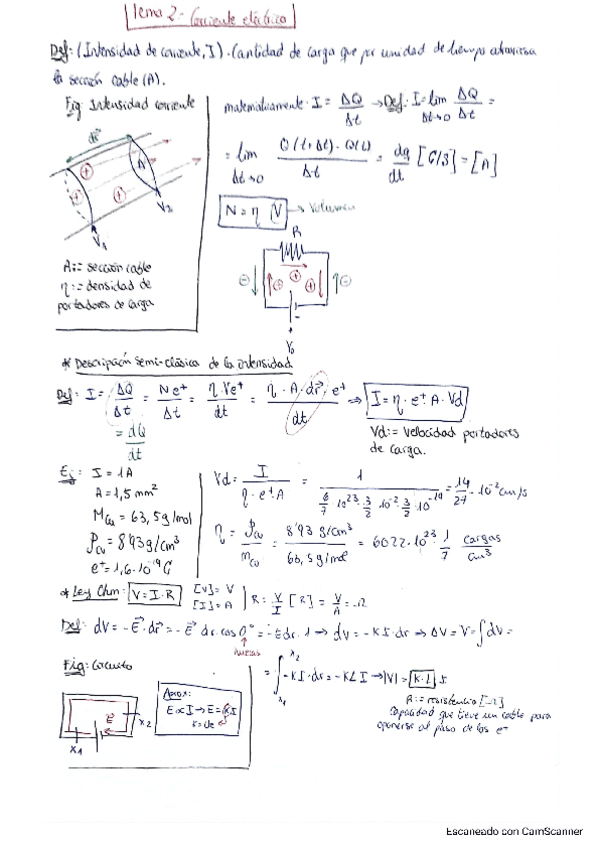 Tema 2 - Corriente eléctrica
Def: (Intensidad de corriente, I). Cantidad de carga que por unidad de tiempo atraviesa
la sección cable (A).
Fig: Intensidad corriente
matemáticamente: I = ΔQ/Δt → Def: I = lim Δt→0 ΔQ/Δt =
= lim Δt→0 Q(t+Δt) - Q(t) / Δt = dq/dt [C/S] = [A]
dr
A
V1
V2
N = η V → Volumen
A := sección cable
η := densidad de
portadores de carga
R
V0
* Descripción semi-clásica de la intensidad
Def: I = ΔQ/Δt = N e⁺/Δt = η·V e⁺/dt = η·A·dr·e⁺/dt ⇒ I = η·e⁺ A·Vd
= dQ/dt
Vd := velocidad portadores
de carga.
Ej: I = 1A
A = 1,5 mm²
M Cu = 63,5 g/mol
ρ Cu = 8'93 g/cm³
e⁺ = 1,6·10⁻¹⁹ C
Vd = I / η·e⁺·A = 1 / 6/7 10²³·3/2 10⁻²·3/2·10⁻¹⁹ = 14/27·10⁻² cm/s
η = ρCu/mCu = 8'93 g/cm³ / 63,5 g/mol = 6022·10²³·1/7 cargas/cm³
* Ley Ohm: V = I·R
[V] = V
[I] = A
R = V/I [R] = V/A = Ω
Def: dV = -E·dr = -E dr·cos 0° = -E dr·1 → dv = -KI·dr ⇒ ΔV = V = ∫dv =
Fig: Circuito
= ∫ x1 x2 -KI·dr = -KLI → |V| = K·L I
R := resistencia [Ω]
Capacidad que tiene un cable para
oponerse al paso de los e⁺
Aprox:
E ∝ I → E = KI
K = cte
E
x1
x2
Escaneado con CamScanner